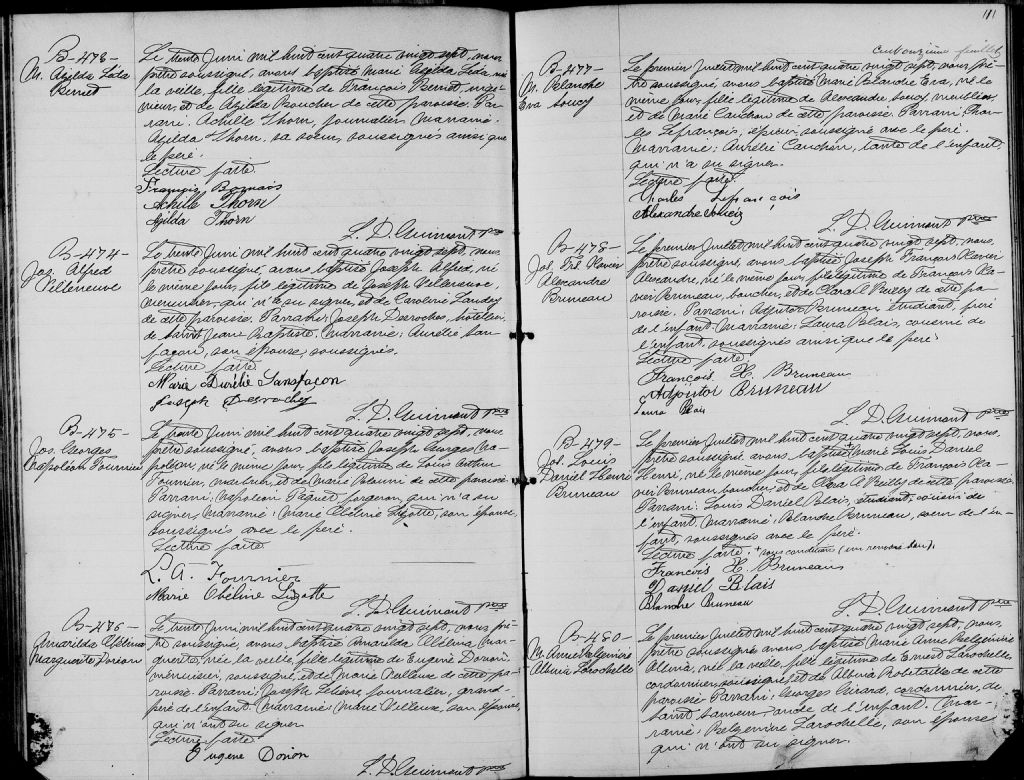 B-473-
M. Agilda Léda
Bernet
Le trente Juin mil huit cent quatre vingt sept, nous
prêtre soussigné, avons baptisé Marie Agilda Léda née
la veille, fille légitime de François Bernet,
et de Agilda Boucher de cette paroisse. Par-
rain: Achille Thorn, journalier, marraine:
Agilda Thorn, sa soeur, soussignés ainsi que
le père.
Lecture faite.
François
Achille Thorn
Agilda Thorn
L. D. Guimont ptre
B-474-
Jos. Alfred
Villeneuve
Le trente Juin mil huit cent quatre vingt sept, nous
prêtre soussigné, avons baptisé Joseph Alfred, né
le même jour, fils légitime de Joseph Villeneuve,
menuisier, qui n'a su signer, et de Caroline Landry
de cette paroisse. Parrain: Joseph Desroches, hôtelier,
de Saint Jean Baptiste, marraine: Aurélie San-
façon, son épouse, soussignés.
Lecture faite.
Marie Aurélie Sansfaçon
Joseph Desroches
L. D. Guimont ptre
B-475-
Jos. Georges
Napoléon Fournier
Le trente Juin mil huit cent quatre vingt sept, nous
prêtre soussigné, avons baptisé Joseph Georges Na-
poléon, né le même jour, fils légitime de Louis Arthur
Fournier, et de Marie de cette paroisse
Parrain: Napoléon Paquet, forgeron, qui n'a su
signer, marraine: Marie Obéline Lizotte, son épouse,
soussignés avec le père.
Lecture faite
L. A. Fournier
Marie Obéline Lizotte
L. D. Guimont ptre
B-476-
Amarilda Albina
Marguerite Dorion
Le trente Juin mil huit cent quatre vingt sept, nous prê-
tre soussigné, avons baptisé Amarilda Albina Mar-
guerite, née la veille, fille légitime de Eugène Dorion,
menuisier, soussigné, et de Marie de cette pa-
roisse. Parrain: Joseph journalier, grand-
père de l'enfant, marraine: Marie son épouse,
qui n'ont su signer
Lecture faite.
Eugène Dorion
L. D. Guimont ptre
111
cent onzième feuillet
B-477-
M. Blanche
Eva Soucy
Le premier Juillet mil huit cent quatre vingt sept, nous prê-
tre soussigné, avons baptisé Marie Blanche Eva, née le
même jour, fille légitime de Alexandre Soucy
et de Marie Cauchon de cette paroisse. Parrain: Char-
les Lefrançois, épicier, soussigné avec le père.
Marraine: Aurélie Cauchon, tante de l'enfant,
qui n'a su signer.
Lecture faite.
Charles Lefrançois
Alexandre Soucy
L. D. Guimont ptre
B-478-
Jos. Frs. Xavier
Alexandre
Bruneau
Le premier Juillet mil huit cent quatre vingt sept, nous,
prêtre soussigné, avons baptisé Joseph François Xavier
Alexandre, né le même jour, fils légitime de François Xa-
vier Bruneau, boucher, et de Clara A Reilly de cette pa-
roisse. Parrain: Adjutor Bruneau étudiant, frère
de l'enfant. Marraine: Laura Blais, cousine de
l'enfant, soussignés ainsi que le père.
Lecture faite.
François X. Bruneau
Adjutor Bruneau
Laura Blais
L. D. Guimont ptre
B-479-
Jos. Louis
Daniel Henri
Bruneau
Le premier Juillet mil huit cent quatre vingt sept, nous,
prêtre soussigné, avons baptisé + Marie Louis Daniel
Henri, né le même jour, fils légitime de François Xa-
vier Bruneau, boucher, et de Clara A Reilly de cette paroisse.
Parrain: Louis Daniel Blais, étudiant, cousin de
l'enfant. Marraine: Blanche Bruneau, soeur de l'en-
fant, soussignés avec le père.
Lecture faite. + sous condition (un renvoi bon).
François X. Bruneau
Daniel Blais
Blanche Bruneau
L. D. Guimont ptre
B-480-
M. Anne Belzémire
Albina Larochelle
Le premier Juillet mil huit cent quatre vingt sept, nous,
prêtre soussigné avons baptisé Marie Anne Belzémire
Albina, née la veille, fille légitime de Ernest Larochelle
cordonnier, soussigné, et de Albina Robitaille de cette
paroisse. Parrain: Georges Girard, cordonnier, de
Saint Sauveur, oncle de l'enfant. Mar-
raine: Belzémire Larochelle, son épouse
qui n'ont su signer.